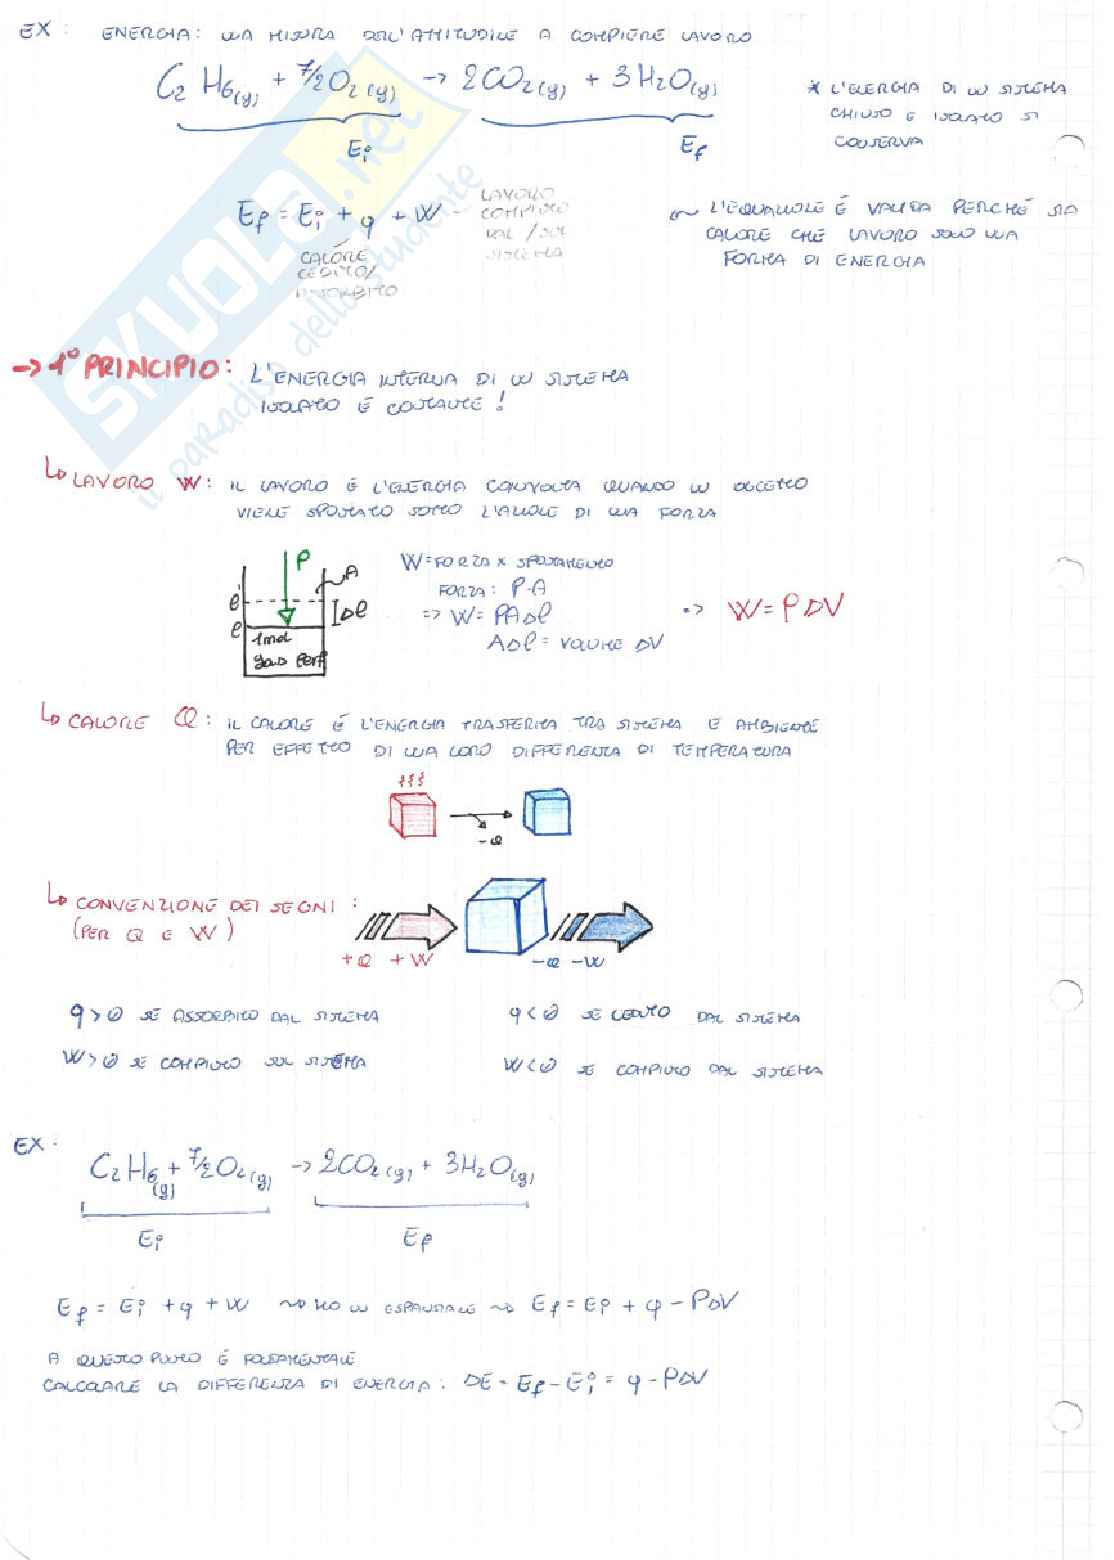 EX: ENERGIA: UNA MISURA DELL'ATTITUDINE A COMPIERE LAVORO
C2 H6(g) + 7/2O2(g) → 2CO2(g) + 3H2O(g)
Ei
Ef
* L'ENERGIA DI UN SISTEMA
CHIUSO E ISOLATO SI
CONSERVA
Ef = Ei + q + W
LAVORO
COMPIUTO
DAL/SUL
SISTEMA
CALORE
CEDUTO/
ASSORBITO
~ L'EQUAZIONE È VALIDA PERCHÉ SIA
CALORE CHE LAVORO SONO UNA
FORMA DI ENERGIA
→ 1° PRINCIPIO: L'ENERGIA INTERNA DI UN SISTEMA
ISOLATO È COSTANTE!
↳ LAVORO W: IL LAVORO È L'ENERGIA COINVOLTA QUANDO UN OGGETTO
VIENE SPOSTATO SOTTO L'AZIONE DI UNA FORZA
P
A
l'
Δl
l
1 mol
gas perf
W = FORZA x SPOSTAMENTO
FORZA: P·A
=> W = PAΔl
AΔl = VOLUME ΔV
=> W = PΔV
↳ CALORE Q: IL CALORE È L'ENERGIA TRASFERITA TRA SISTEMA E AMBIENTE
PER EFFETTO DI UNA LORO DIFFERENZA DI TEMPERATURA
-Q
↳ CONVENZIONE DEI SEGNI:
(PER Q E W)
+Q +W
-Q -W
q>0 SE ASSORBITO DAL SISTEMA
q<0 SE CEDUTO DAL SISTEMA
W>0 SE COMPIUTO SUL SISTEMA
W<0 SE COMPIUTO DAL SISTEMA
EX:
C2H6(g) + 7/2O2(g) → 2CO2(g) + 3H2O(g)
Ei
Ef
Ef = Ei + q + W ~> HO UN ESPANSIONE ~> Ef = Ei + q - PΔV
A QUESTO PUNTO È FONDAMENTALE
CALCOLARE LA DIFFERENZA DI ENERGIA: ΔE = Ef - Ei = q - PΔV
SKUOLA.net
il paradiso dello studente